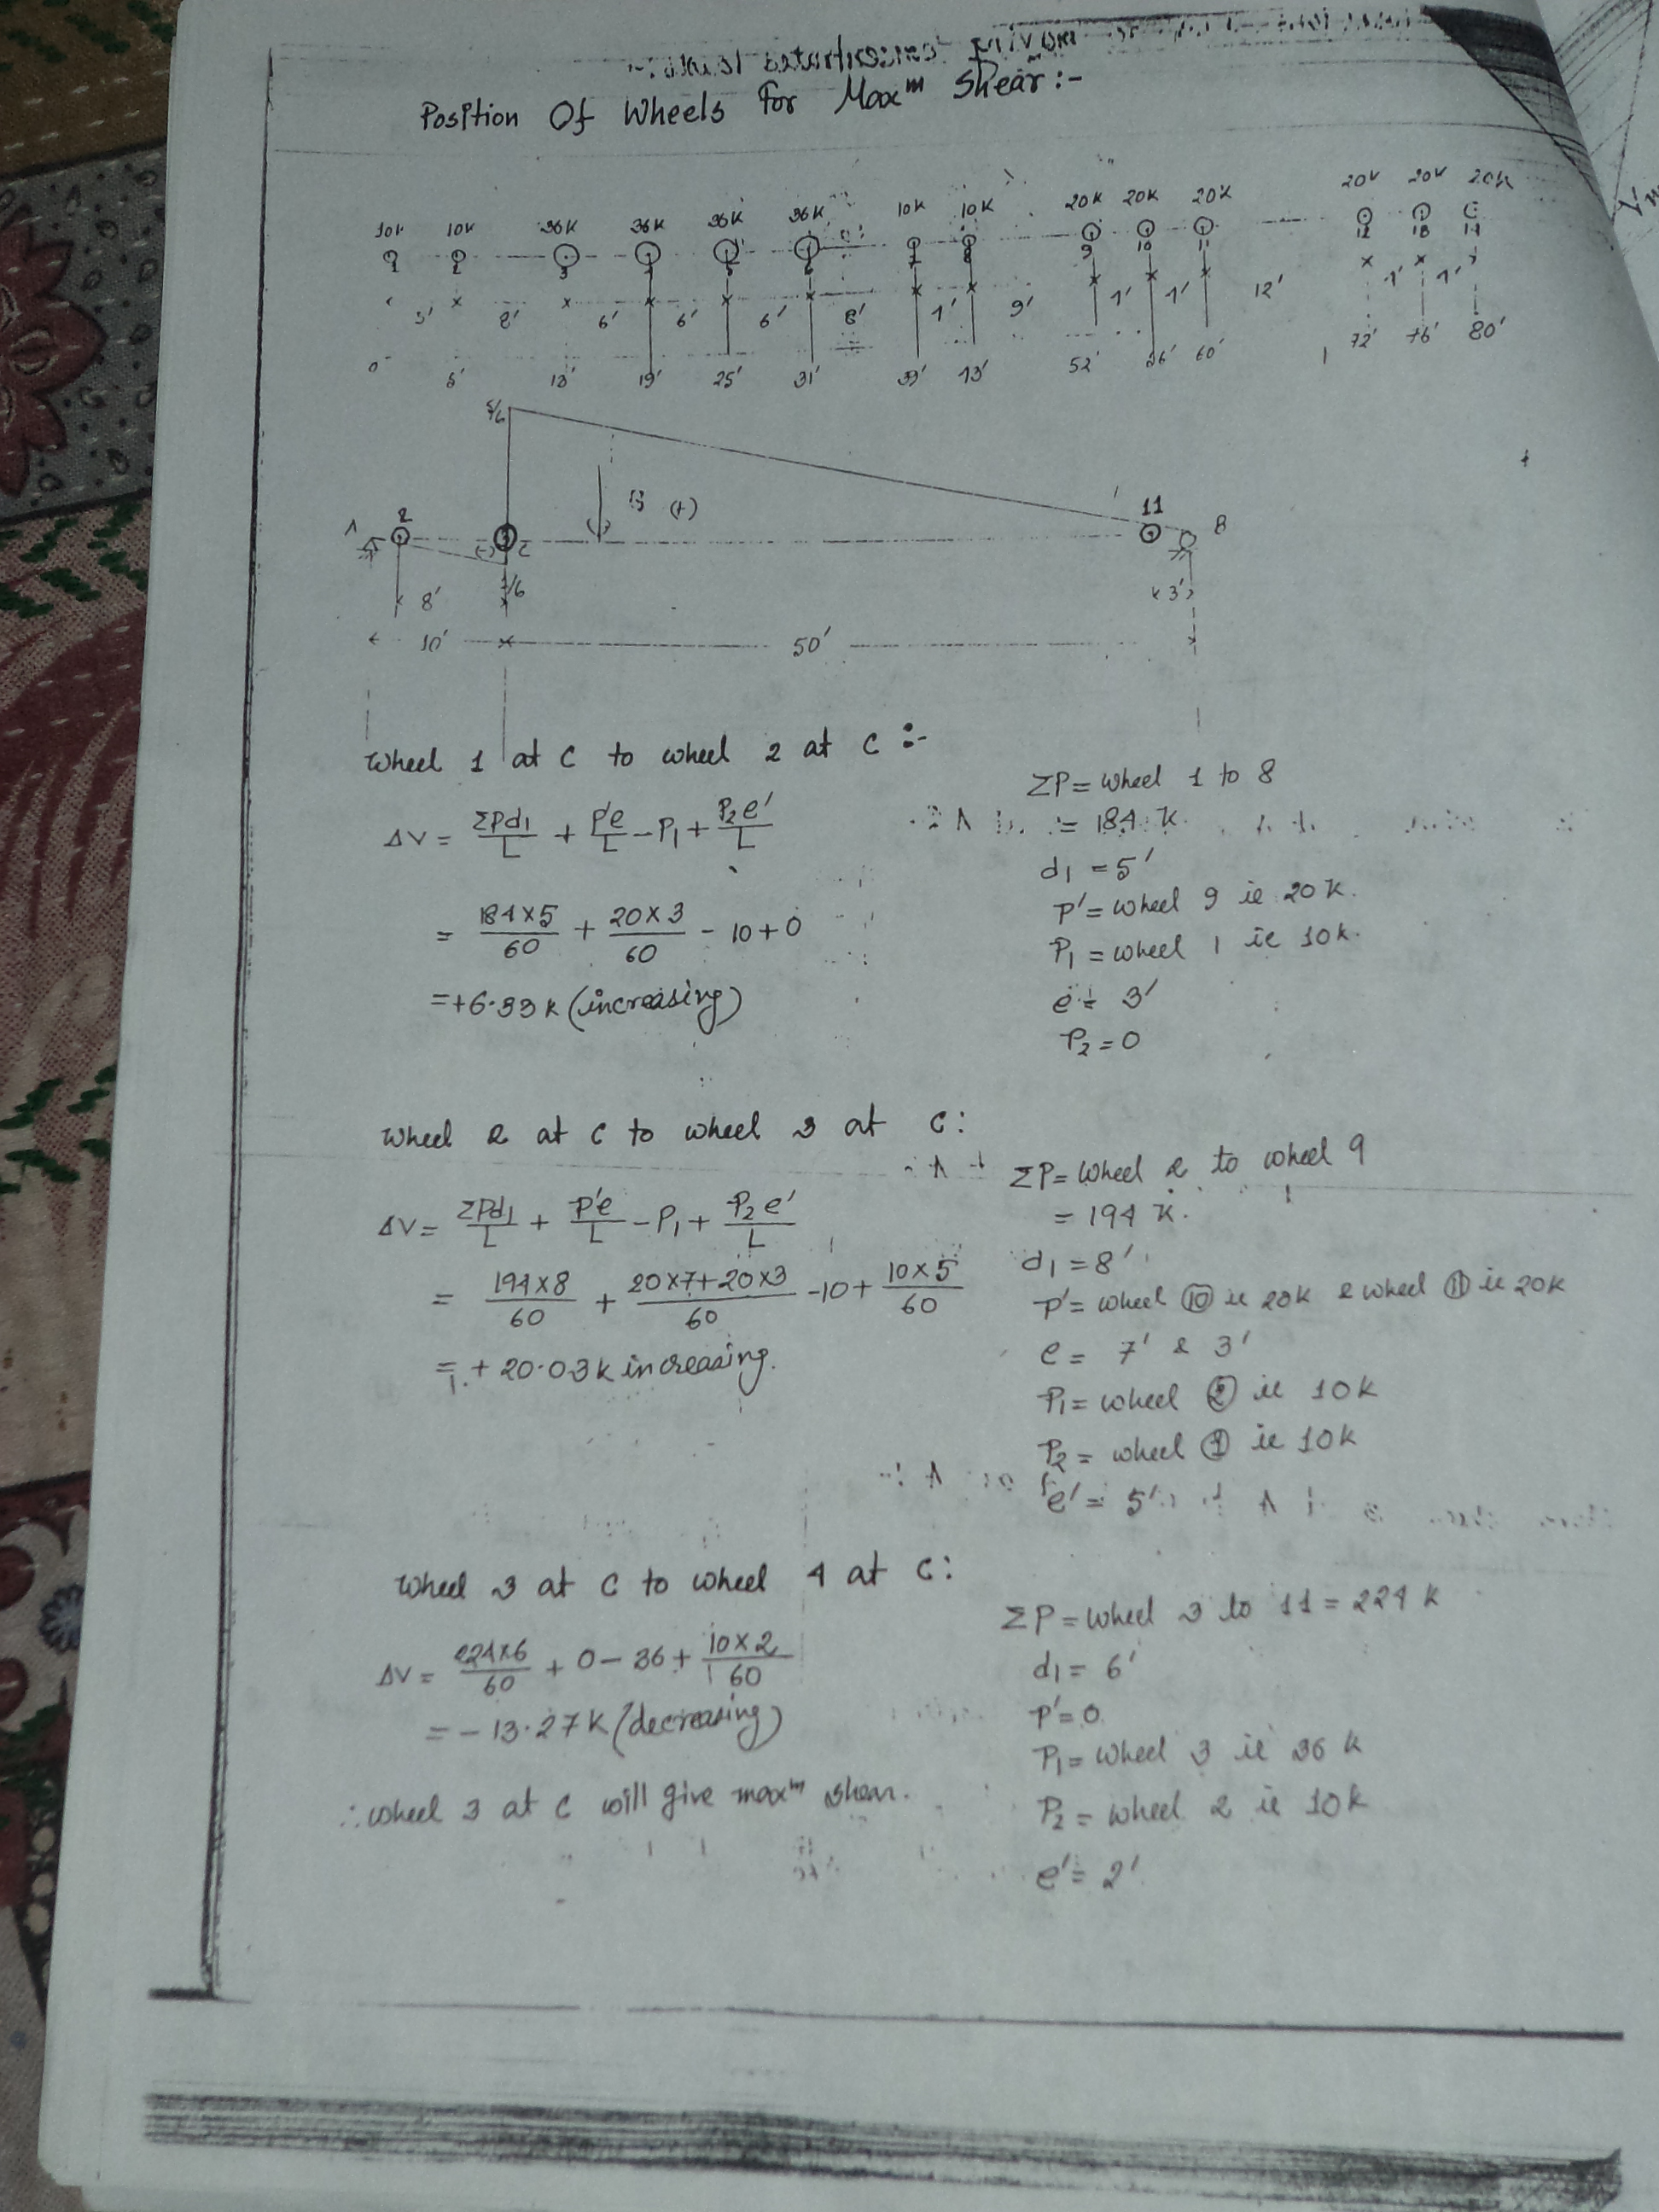 Position Of Wheels For Maxm Shear:-
10K 10K 36K 36K 36K 36K 10K 10K 20K 20K 20K 20K 20K 20K
1 2 3 4 5 6 7 8 9 10 11 12 13 14
5' 8' 6' 6' 6' 8' 4' 9' 4' 4' 12' 4' 4'
0 5' 13' 19' 25' 31' 39' 43' 52' 56' 60' 72' 76' 80'
5/6
(+)
A 2 (-) C 11 B
1/6
8' 3'
10' 50'
Wheel 1 at C to wheel 2 at C :-
ΔV = ΣPd1/L + P'e/L - P1 + P2e'/L
= 184×5/60 + 20×3/60 - 10 + 0
= +6.33 K (increasing)
ΣP = wheel 1 to 8
= 184 K.
d1 = 5'
P' = wheel 9 ie 20 K.
P1 = wheel 1 ie 10 K.
e = 3'
P2 = 0
Wheel 2 at C to wheel 3 at C:
ΔV = ΣPd1/L + P'e/L - P1 + P2e'/L
= 194×8/60 + 20×7+20×3/60 - 10 + 10×5/60
= + 20.03 K increasing.
ΣP = Wheel 2 to wheel 9
= 194 K.
d1 = 8'
P' = wheel 10 ie 20K & wheel 11 ie 20K
e = 7' & 3'
P1 = wheel 2 ie 10K
P2 = wheel 1 ie 10K
e' = 5'
Wheel 3 at C to wheel 4 at C:
ΔV = 224×6/60 + 0 - 36 + 10×2/60
= - 13.27 K (decreasing)
∴ wheel 3 at C will give maxm shear.
ΣP = wheel 3 to 11 = 224 K
d1 = 6'
P' = 0
P1 = wheel 3 ie 36 K
P2 = wheel 2 ie 10K
e' = 2'